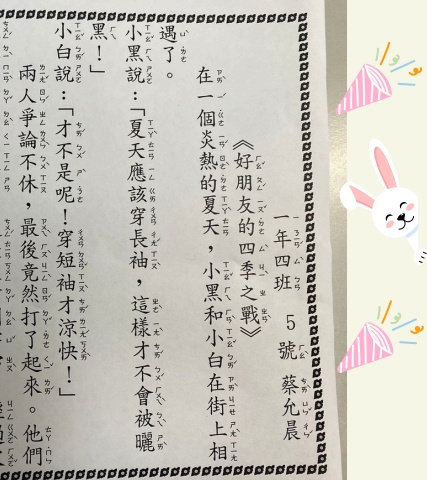 一年四班 5號 蔡允晨
《好朋友的四季之戰》
在一個炎熱的夏天，小黑和小白在街上相
遇了。
小黑說：「夏天應該穿長袖，這樣才不會被曬
黑！」
小白說：「才不是呢！穿短袖才涼快！」
兩人爭論不休，最後竟然打了起來。他們